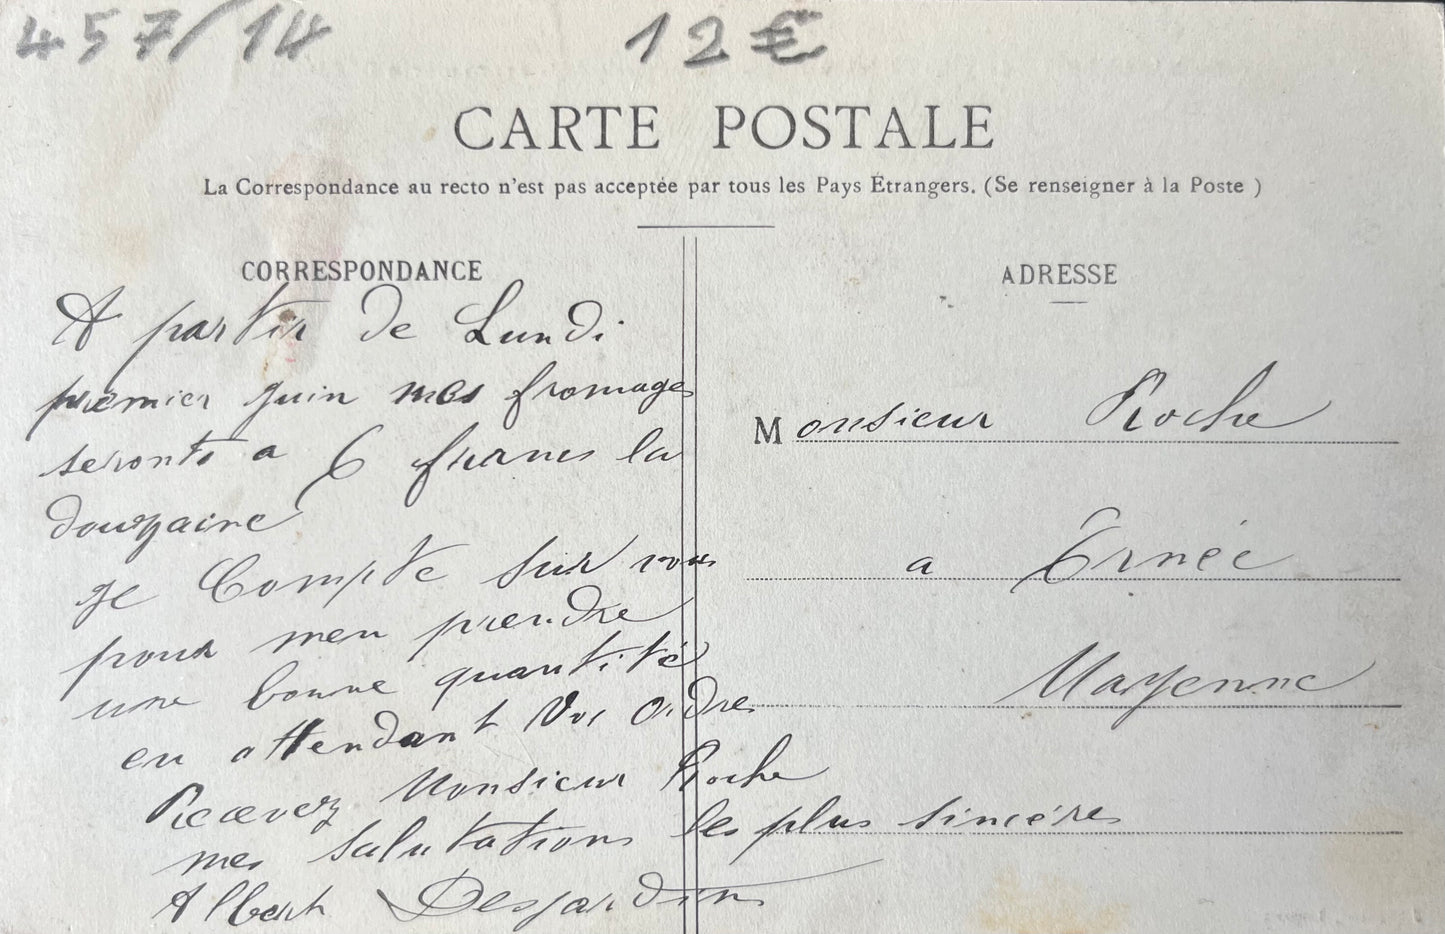 457/14
12 €
CARTE POSTALE
La Correspondance au recto n'est pas acceptée par tous les Pays Étrangers. (Se renseigner à la Poste )
CORRESPONDANCE
A partir de Lundi
premier Juin mes fromages
seronts a 6 francs la
douzaine
Je Compte sur vous
pour men prendre
une bonne quantité
en attendant Vos Ordres
Recevez Monsieur Roche
mes salutations les plus sincéres
Albert Desjardins
ADRESSE
Monsieur Roche
a Ernée
Mayenne